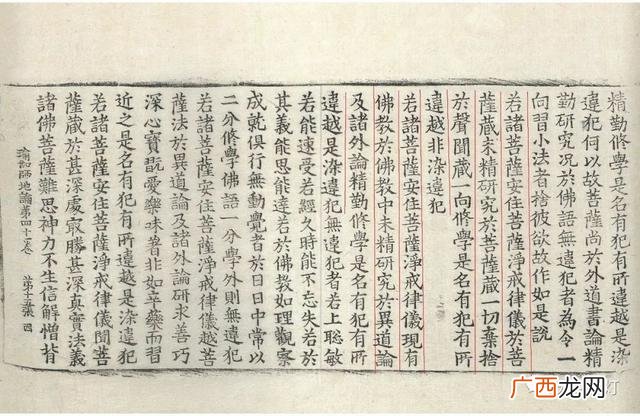 精勤修學是名有犯有所違越是染
違犯何以故菩薩尚於外道書論精
勤研究況於佛語無違犯者為令一
向習小法者捨彼欲故作如是說
若諸菩薩安住菩薩淨戒律儀於菩
薩藏未精研究於菩薩藏一切棄捨
於聲聞藏一向修學是名有犯有所
違越非染違犯
若諸菩薩安住菩薩淨戒律儀現有
佛教於佛教中未精研究於異道論
及諸外論精勤修學是名有犯有所
違越是染違犯無違犯者若上聰敏
若能速受若經久時能不忘失若於
其義能思能達若於佛教如理觀察
成就俱行無動覺者於日日中常以
二分修學佛語一分學外則無違犯
若諸菩薩安住菩薩淨戒律儀越菩
薩法於異道論及諸外論研求善巧
深心寶翫愛樂味著非如辛藥而習
近之是名有犯有所違越是染違犯
若諸菩薩安住菩薩淨戒律儀聞菩
薩藏於甚深處最勝甚深真實法義
諸佛菩薩難思神力不生信解憎背
瑜伽師地論第四十一卷 第十五張
广西龙网